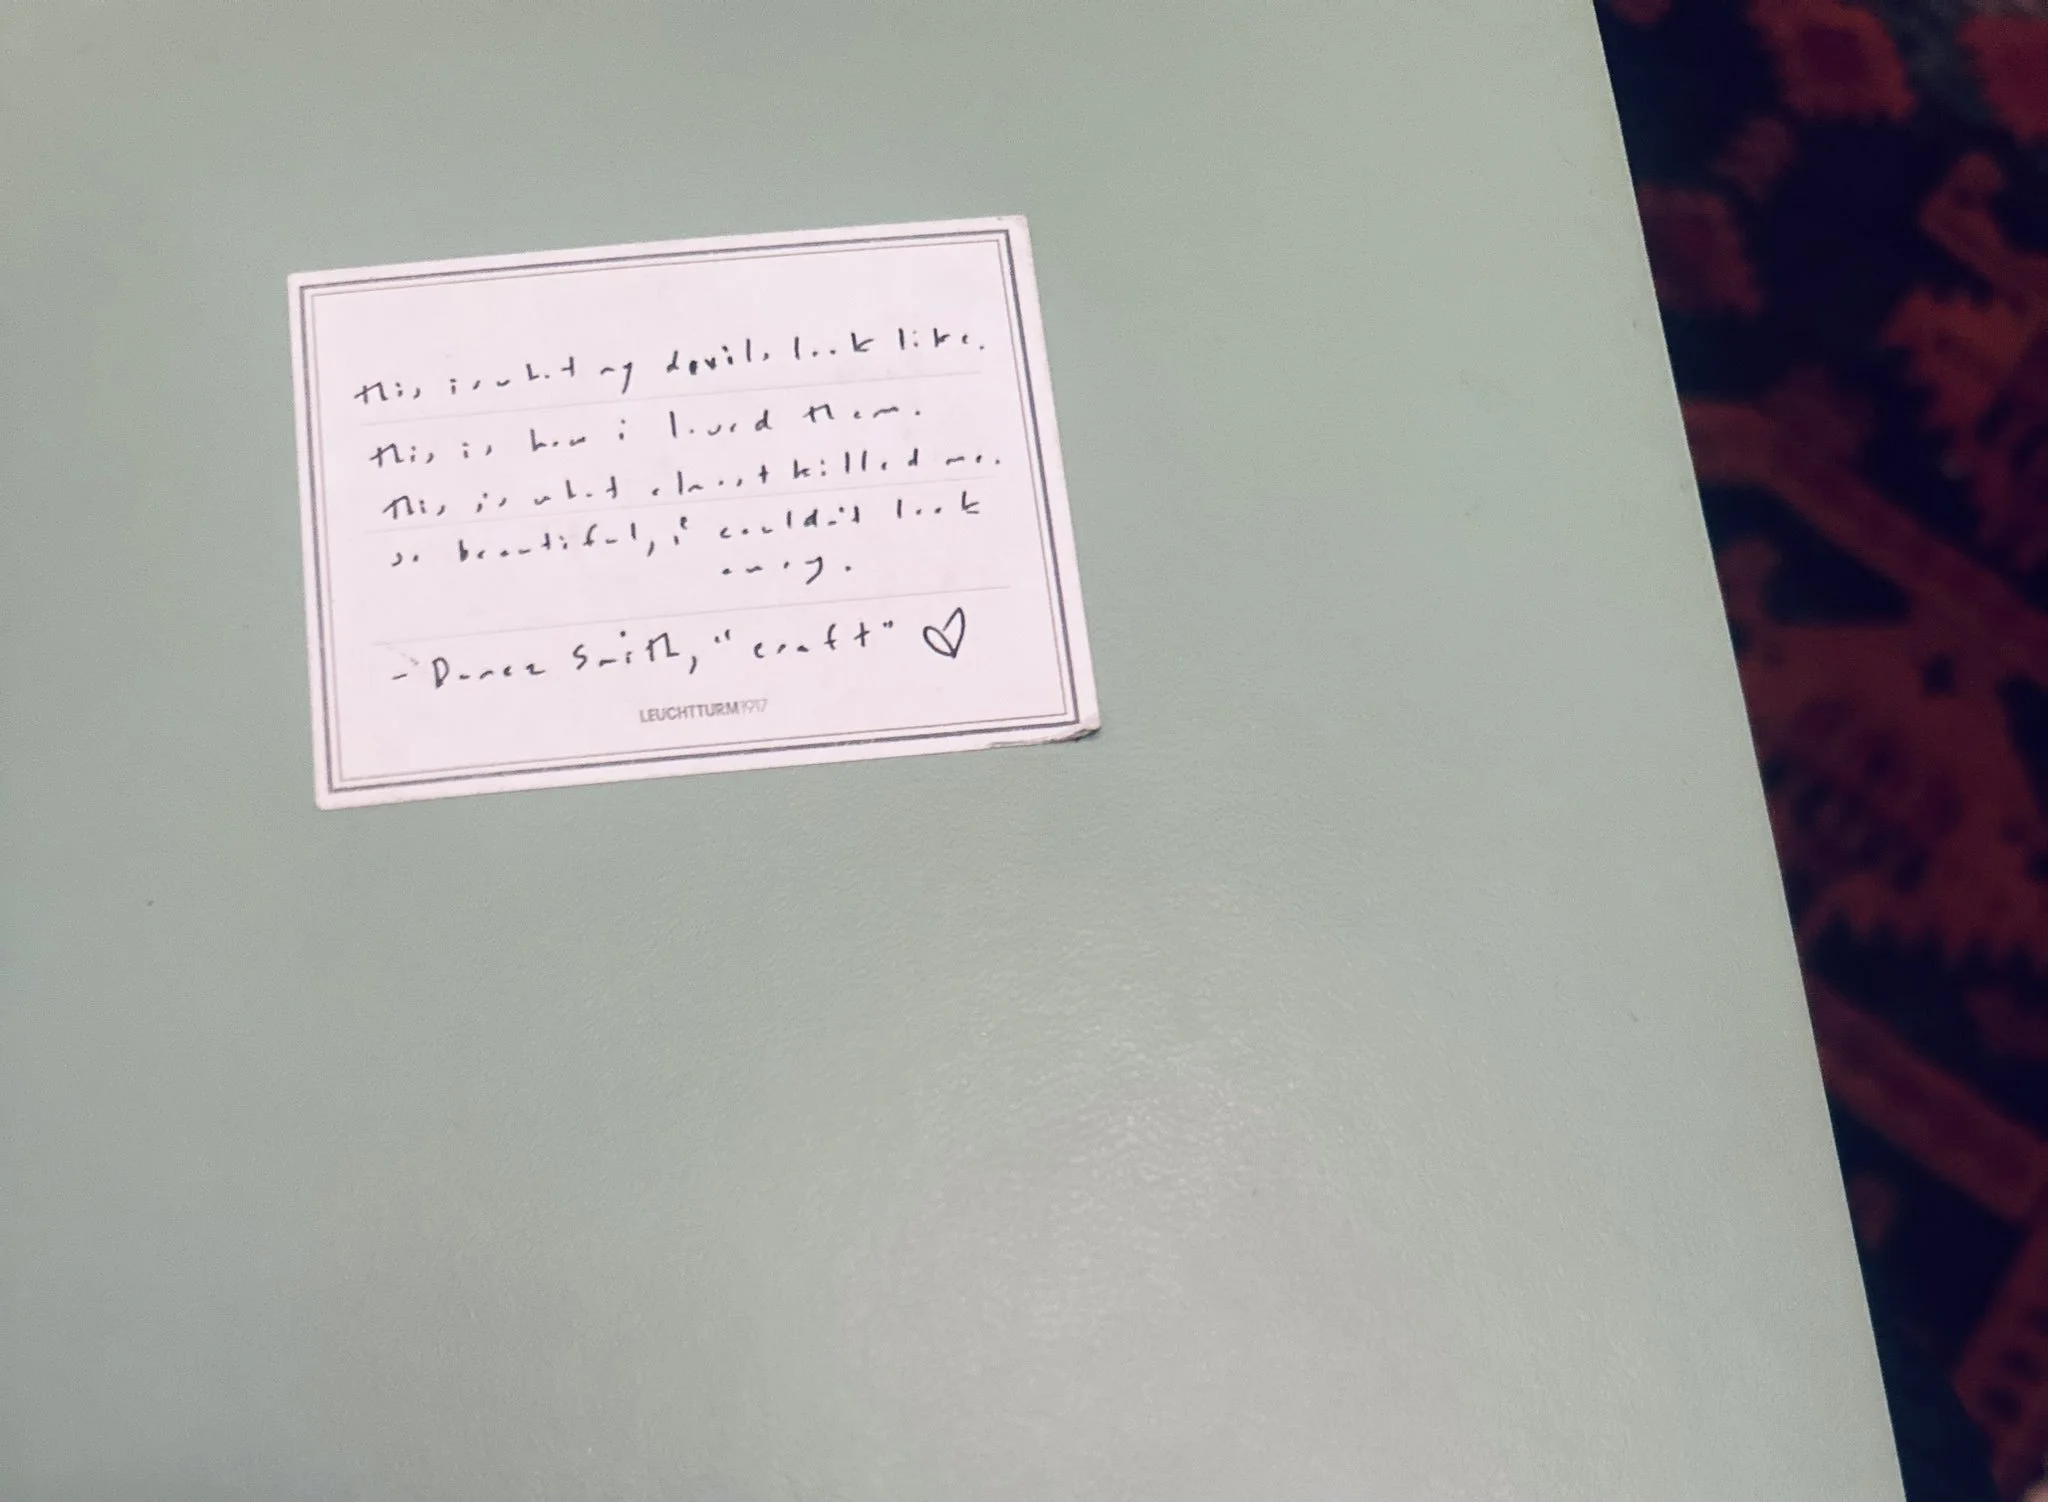 this is what my devils look like.
this is how i loved them.
this is what almost killed me.
so beautiful, i couldn't look
away.
- Danez Smith, "craft" ♡
LEUCHTTURM1917